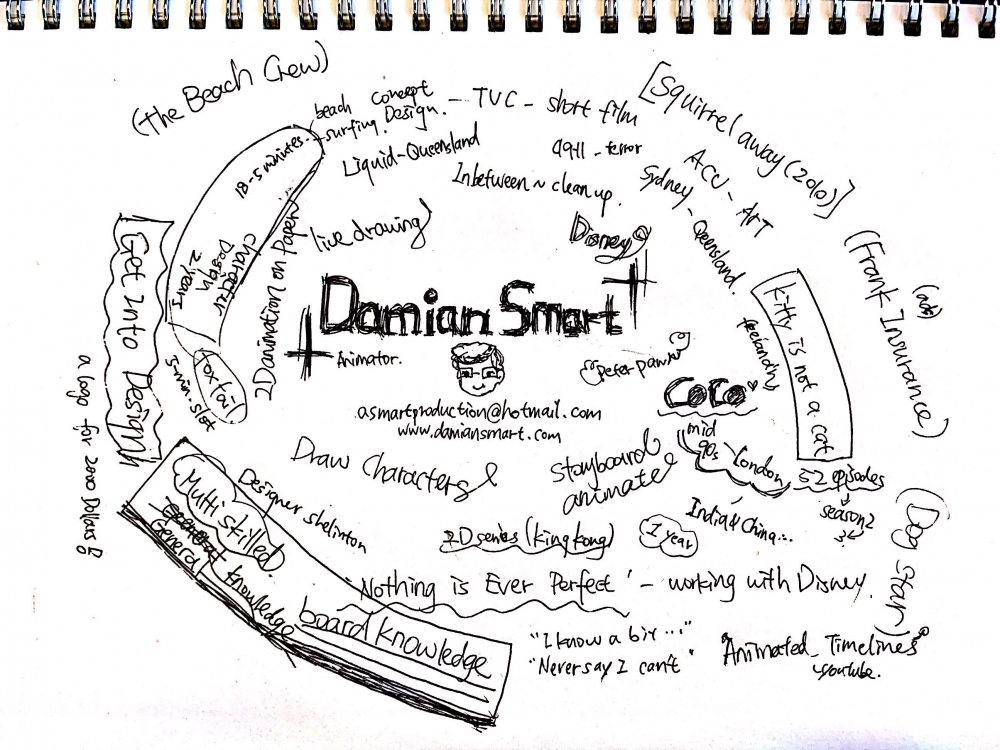 (The Beach Crew)
beach concept
surfing. Design. - TVC - short film
Liquid-Queensland
Inbetween ~ clean up.
911 - terror
[Squirrel away (2010)]
ACU - ART
Sydney - Queensland.
(Frank Insurance)
(ads)
18-5 minutes..
Character
Design
2 years
fox tail
5-min. slot
2D animation on Paper
live drawing
Disney
Damian Smart
Animator.
asmartproduction@hotmail.com
www.damiansmart.com
Peter pan
COCO
freelancing
kitty is not a cat
52 episodes
season 2
?
mid
90s - London
India & China...
Get Into Design
a logo for 2000 Dollars
Draw Characters
storyboard
animate
2D series (king kong)
1 year
(Dog star)
Multi skilled.
Designer shelinton
General knowledge
board knowledge
'Nothing is Ever Perfect' - working with Disney.
"I know a bit ..."
"Never say I can't"
Animated_Timelines
youtube.